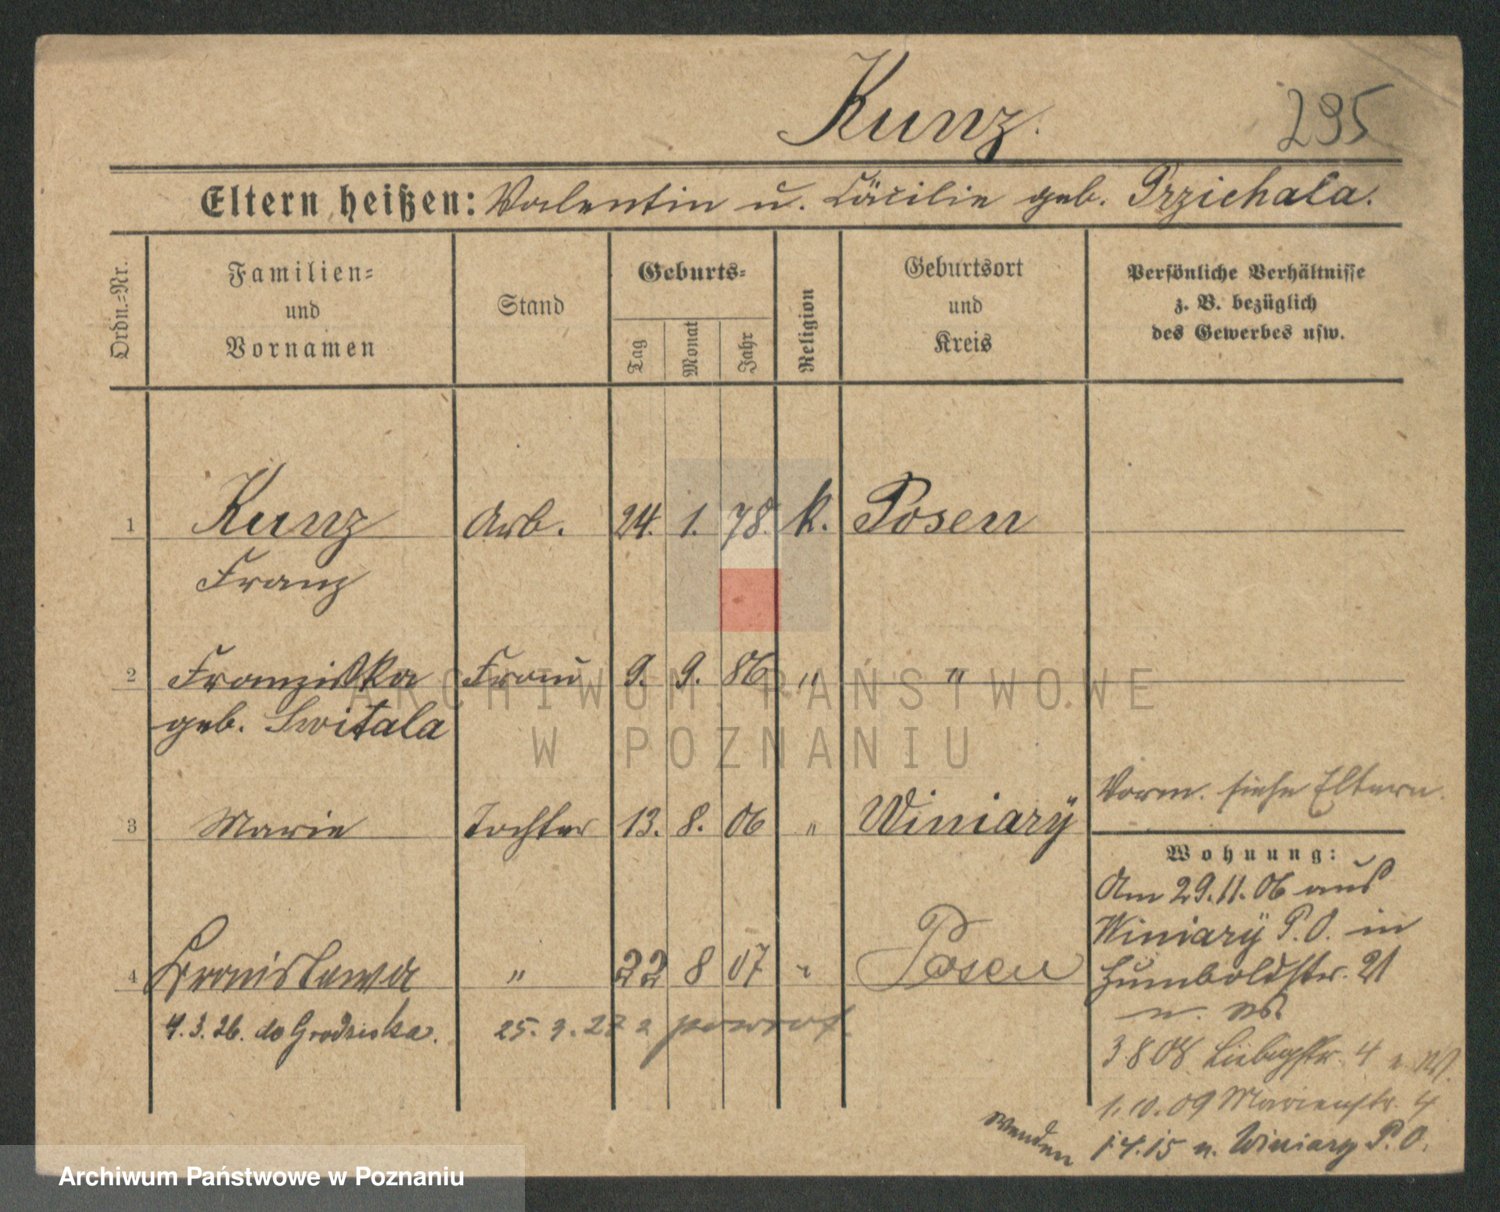 Kunz.
295
Eltern heißen: Valentin u. Cäcilie geb. Przichala.
Ordn.=Nr.
Familien=
und
Vornamen
Stand
Geburts=
Tag
Monat
Jahr
Religion
Geburtsort
und
Kreis
Persönliche Verhältnisse
z. B. bezüglich
des Gewerbes usw.
1 Kunz Arb. 24. 1. 78. k. Posen
Franz
2 Franziska Frau 9. 9. 86 " "
geb. Switala
Vorm. siehe Eltern.
3 Marie Tochter 13. 8. 06 " Winiary
Wohnung:
Am 29.11.06 aus
Winiary P.O. in
Humboldtstr. 21
4 Bronislawa " 22 8 07 " Posen
4.3.26. do Grodziska. 25.9.27 z powrot.
3 8 08 Liebigstr. 4
1.10.09 Marienstr. 4
1.4.15 n. Winiary P.O.
wenden
ARCHIWUM PAŃSTWOWE
W POZNANIU
Archiwum Państwowe w Poznaniu